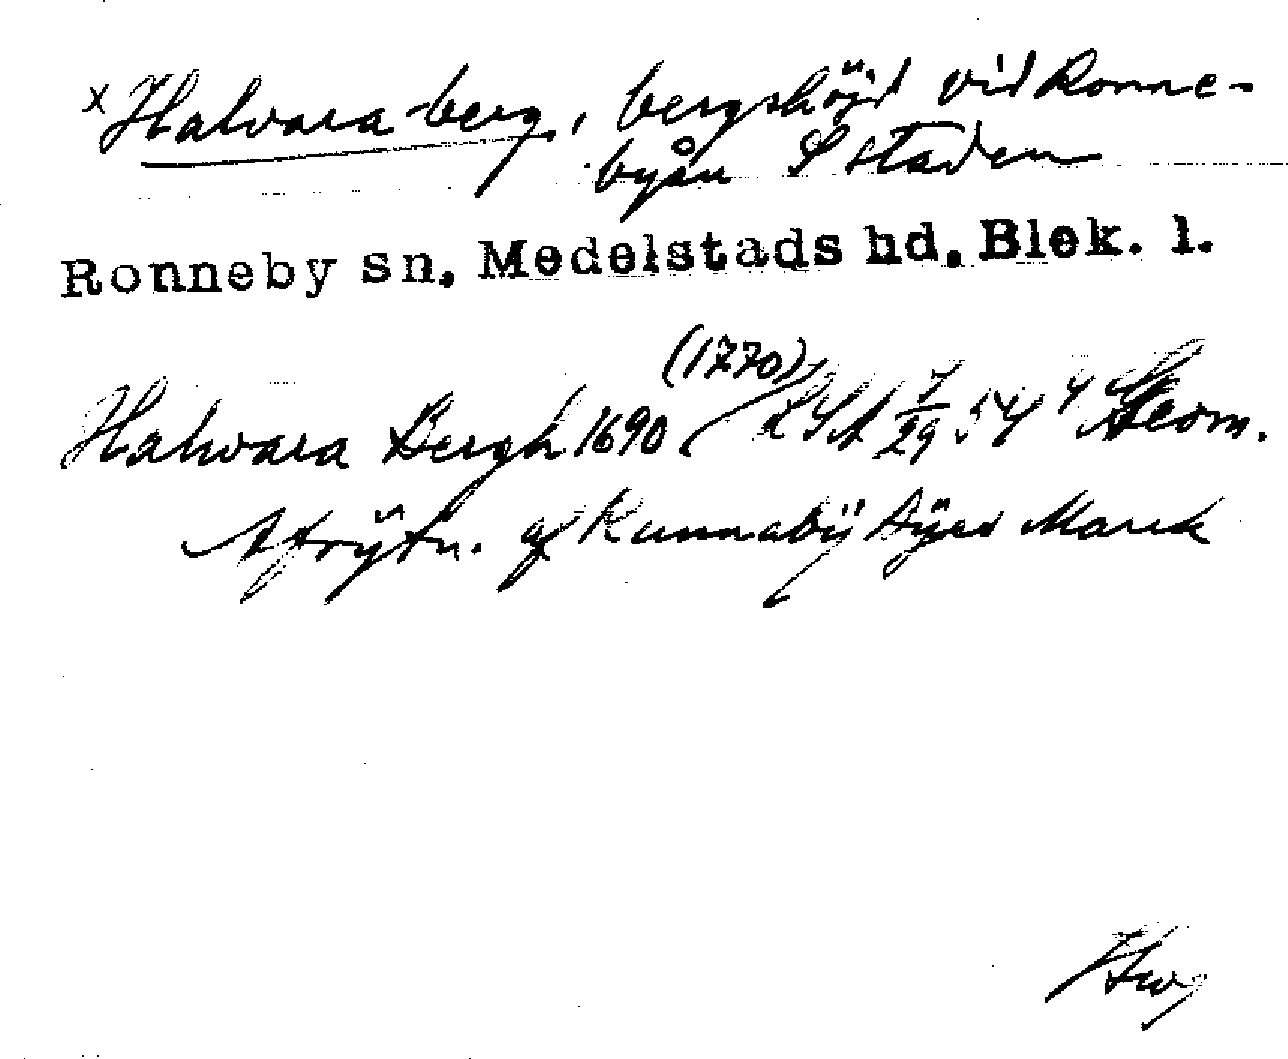 x Halvara berg, bergshöjd vid Ronne-
byån S staden
Ronneby sn. Medelstads hd. Blek. l.
(1770)
Halwara Bergh 1690 LSA 7/29 54 4 Geom.
Afrijtn. af Runnabÿ Bÿes Marck